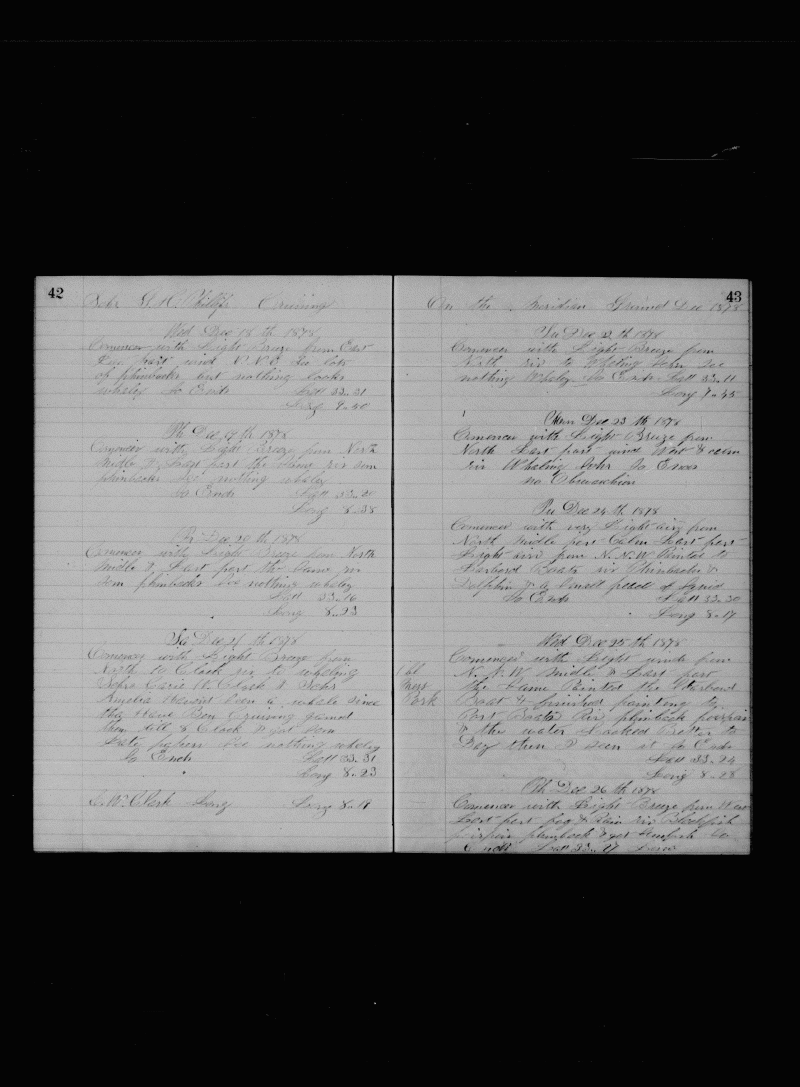 42
Schr G. H. Phillips Cruising
Wed Dec 18 th 1878
Comences with Light Breeze from East
wind N.N.E. See lots
of phinbacks but nothing looks
whaley So Ends Latt 33..31
Long 9..40
Th Dec 19 th 1878
Comences with Light Breeze from North
Middle & Last part the Same see som
phinbacks See nothing whaley
So Ends Latt 33..20
Long 8..38
Fri Dec 20 th 1878
Comences with Light Breeze from North
Middle & Last part the Same see
som phinbacks See nothing whaley
Latt 33..16
Long 8..23
Sa Dec 21 th 1878
Comences with Light Breeze from
North 10 Clock see to whaling
Schrs Carie W. Clark & Schr
Amelia Havent Seen a whale Since
they Have Ben Cruising gamed
them till 8 Clock & got Som
papers See nothing whaley
So Ends Latt 33..31
Long 8..23
C. W. Clark Long Long 8..19
43
On the Meridian Ground Dec 1878
Su Dec 22 th 1878
Comences with Light Breeze from
North see to Whaling See
nothing Whaley So Ends Latt 33..11
Long 7..45
Mon Dec 23 th 1878
Comences with Light Breeze from
North Last part wind West & calm
see Whaling Schr So Ends
no Observation
Tu Dec 24 th 1878
Comences with very Light airs from
North Middle part Calm Last part
Light airs from N.N.W. Painted to
Starbord Boats see Phinbacks &
Dolphin & a Small peace of Squid
So Ends Latt 33..20
Long 8..17
Wed Dec 25 th 1878
1 bl
Mess
Pork
Comences with Light winds from
N.N.W. Middle & Last part
the Same Painted the Starbord
Boat & finished painteng the
Port Boats See phinback
& the water Looked Better to
Day then I seen it So Ends
Latt 33..24
Long 8..28
Th Dec 26 th 1878
Comences with Light Breeze from West
Last part fog & Rain see Blackfish
phinback & So
Ends Latt 33..17